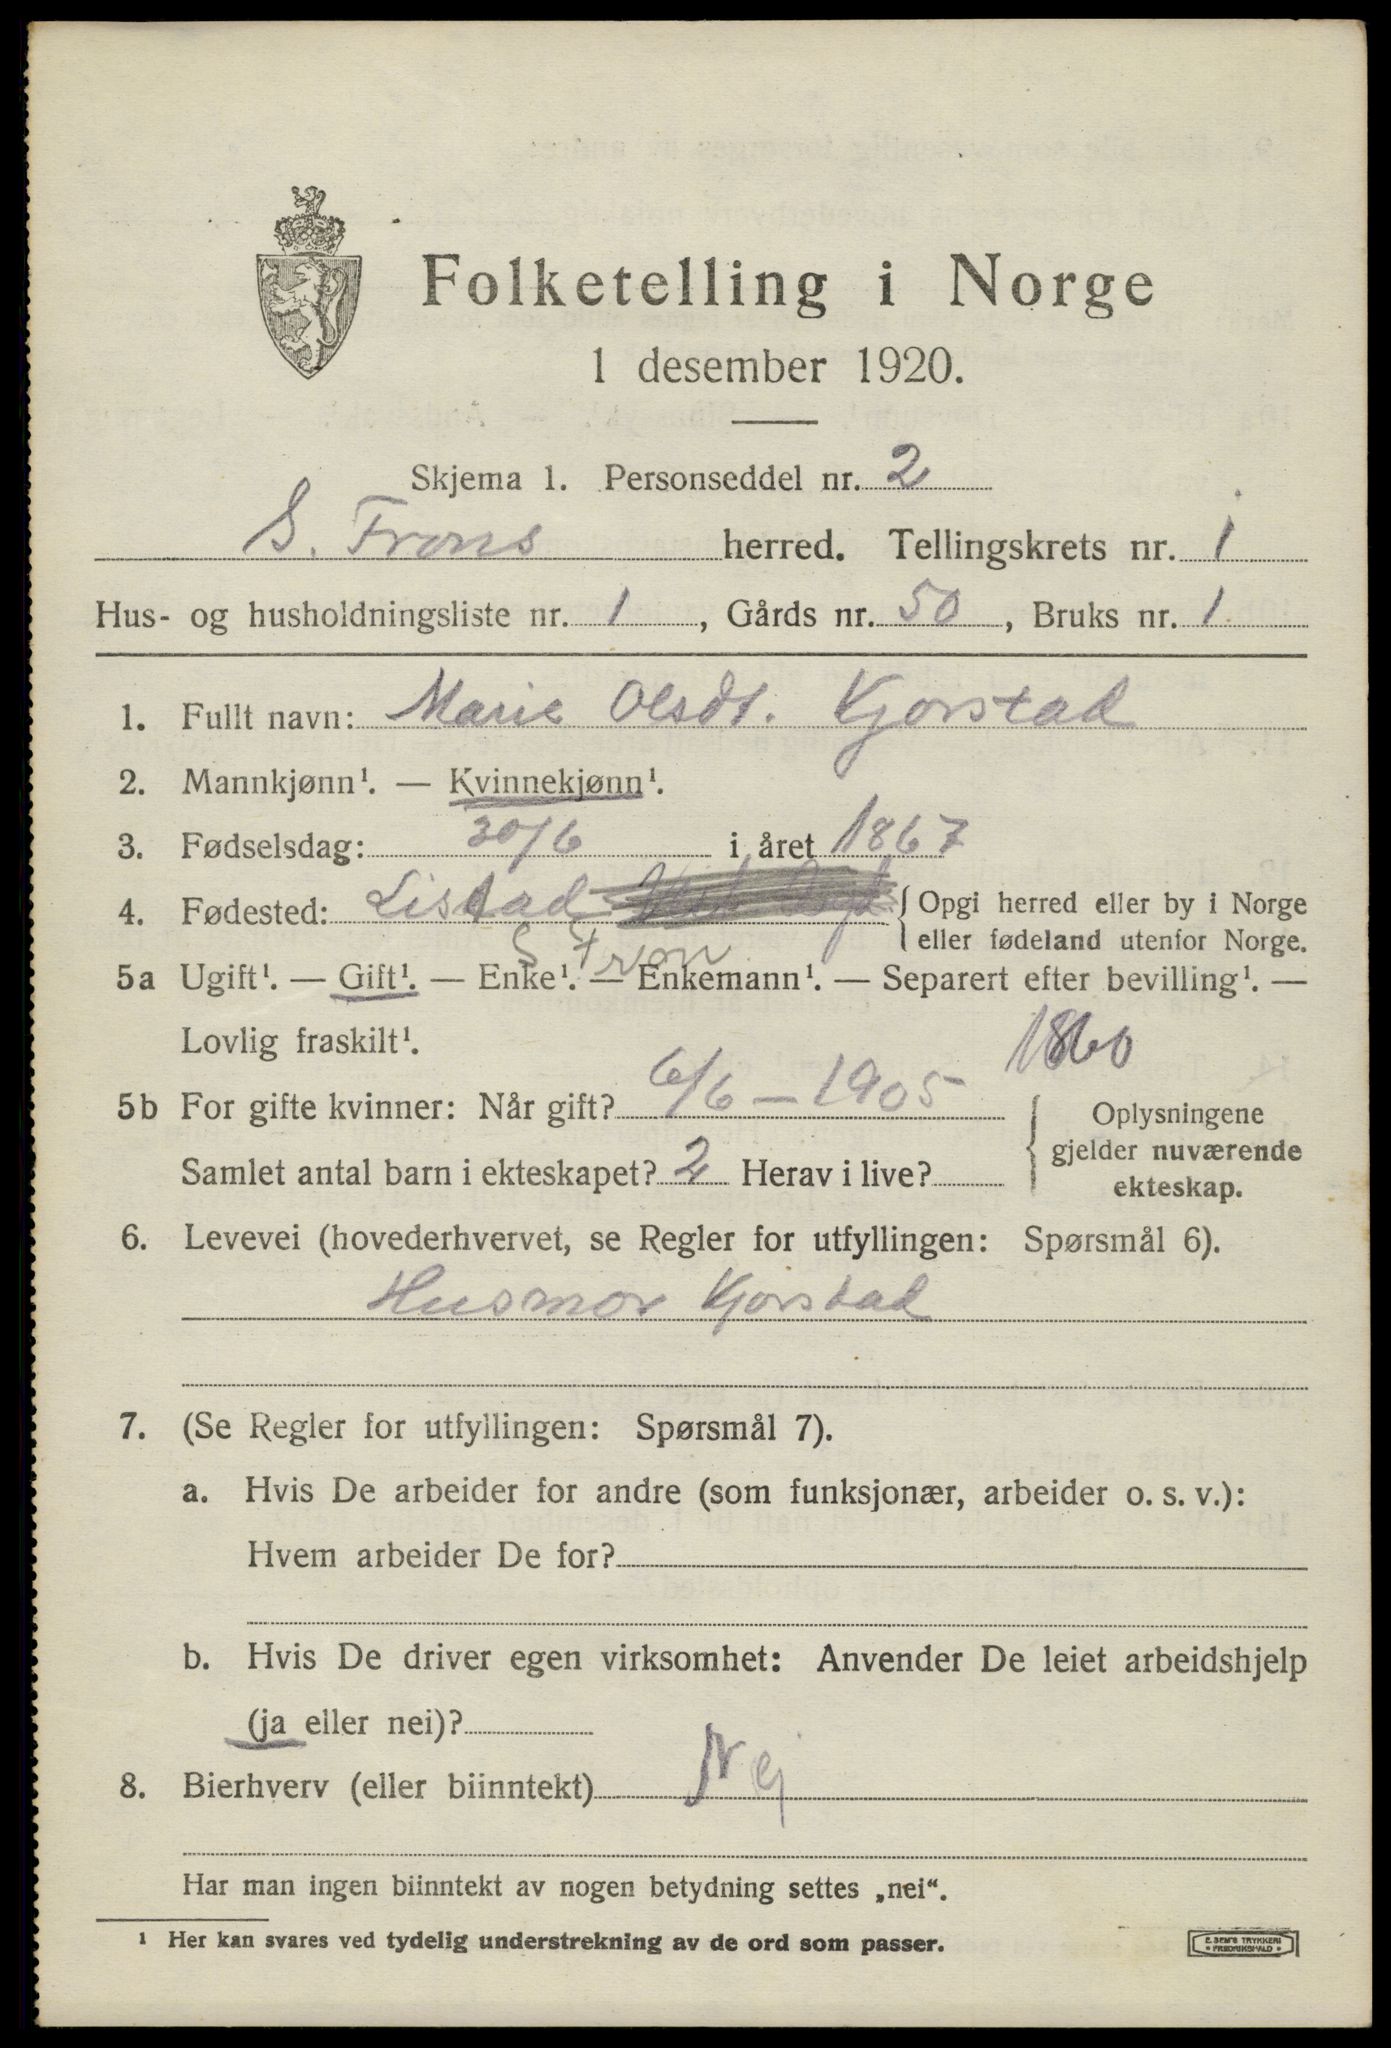 Folketelling i Norge
1 desember 1920.
Skjema 1. Personseddel nr. 2
S. Frons herred. Tellingskrets nr. 1
Hus- og husholdningsliste nr. 1, Gårds nr. 50, Bruks nr. 1
1. Fullt navn: Marie Olsdt. Kjorstad
2. Mannkjønn¹. — Kvinnekjønn¹.
3. Fødselsdag: 30/6 i året 1867
4. Fødested: Listad { Opgi herred eller by i Norge
eller fødeland utenfor Norge.
S Fron
5a Ugift¹. — Gift¹. — Enke¹. — Enkemann¹. — Separert efter bevilling¹. —
Lovlig fraskilt¹.
1860
5b For gifte kvinner: Når gift? 6/6 — 1905 { Oplysningene
gjelder nuværende
Samlet antal barn i ekteskapet? 2 Herav i live?
ekteskap.
6. Levevei (hovederhvervet, se Regler for utfyllingen: Spørsmål 6).
Husmor Kjorstad
7. (Se Regler for utfyllingen: Spørsmål 7).
a. Hvis De arbeider for andre (som funksjonær, arbeider o. s. v.):
Hvem arbeider De for?
b. Hvis De driver egen virksomhet: Anvender De leiet arbeidshjelp
(ja eller nei)?
8. Bierhverv (eller biinntekt) Nej
Har man ingen biinntekt av nogen betydning settes „nei“.
¹ Her kan svares ved tydelig understrekning av de ord som passer.
E. SEM'S TRYKKERI
• FREDRIKSHALD •